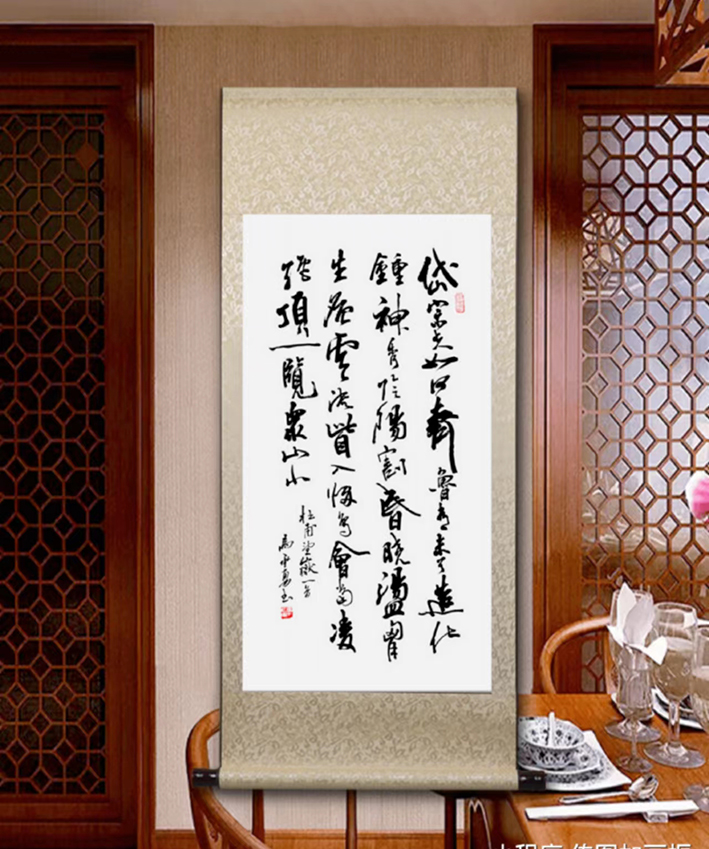 岱宗夫如何齊魯青未了造化
鍾神秀陰陽割昏曉盪胷
生層雲决眥入歸鳥會當凌
絕頂一覽衆山小
杜甫望嶽一首
小程序:传图加画框